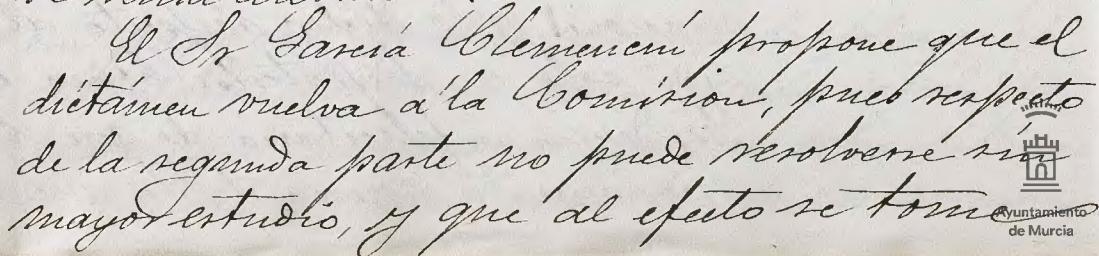 El Sr García Clemencín propone que el
dictámen vuelva á la Comision, pues respecto
de la segunda parte no puede resolverse sin
mayor estudio, y que al efecto se tome
Ayuntamiento
de Murcia